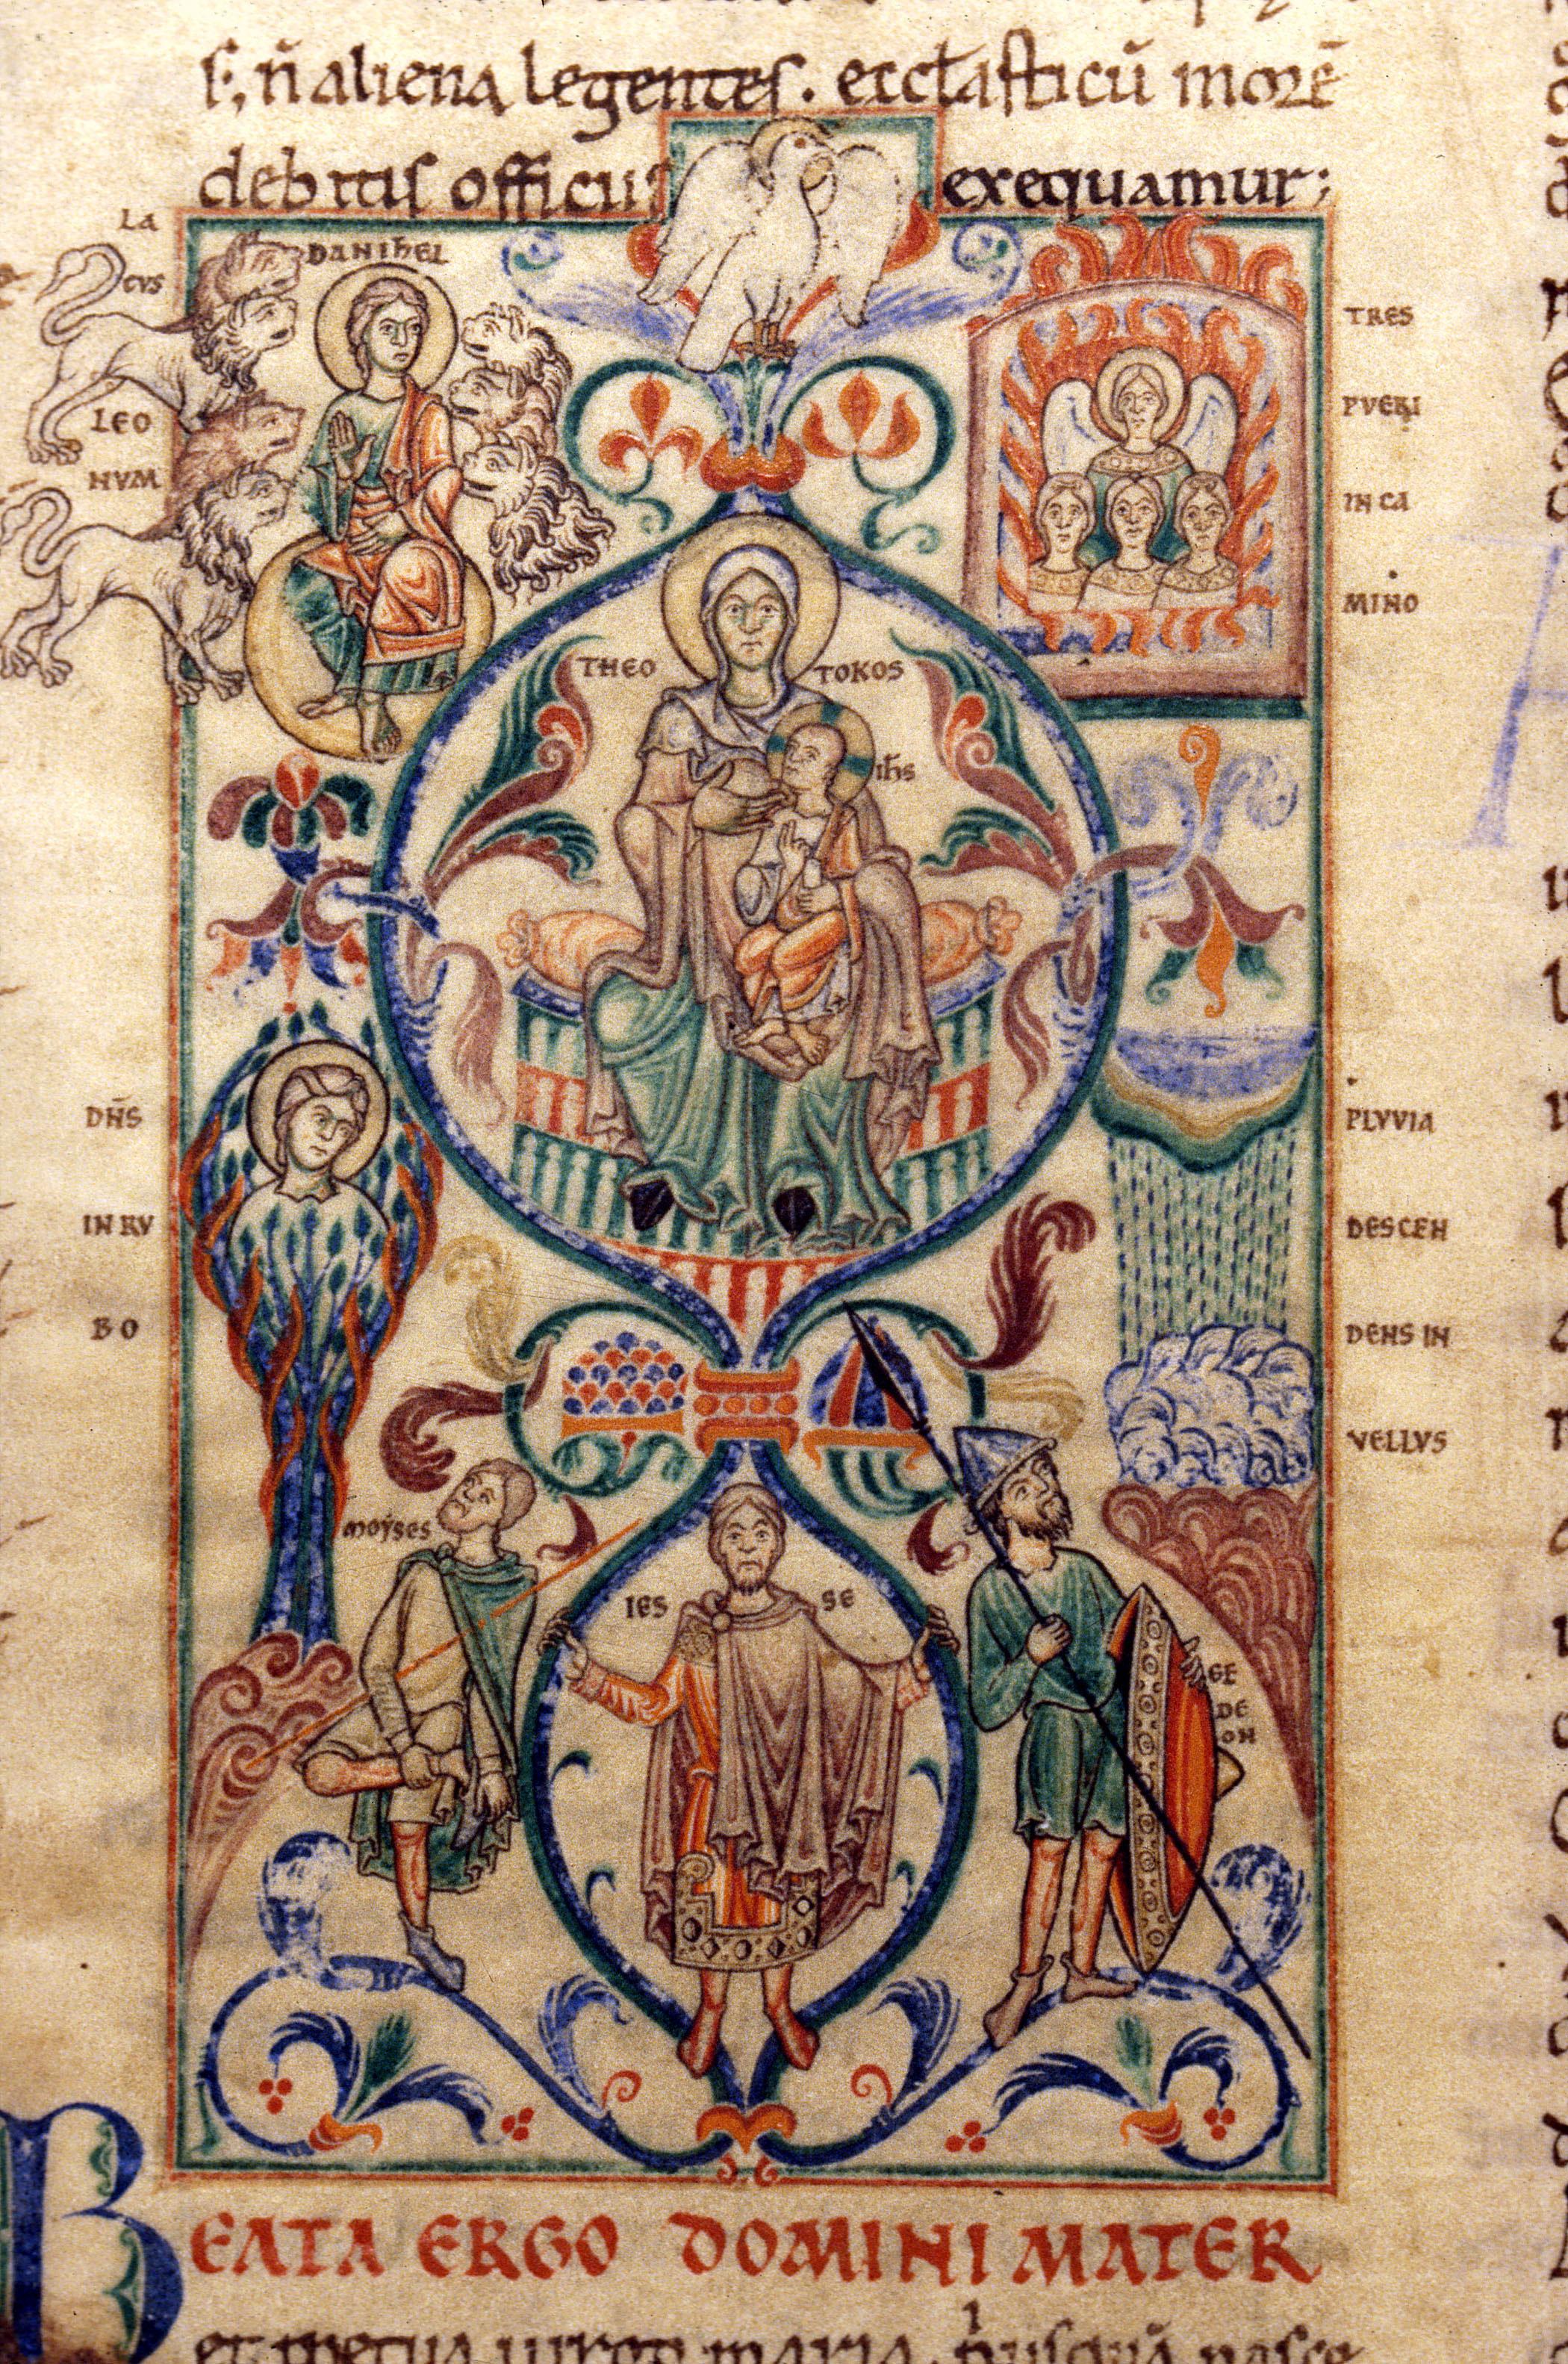 s; n̄ aliena legentes. eccl̄asticū morē
debitis officiis exequamur;
LA
CVS
LEO
NVM
DANIHEL
TRES
PVERI
IN CA
MINO
THEO TOKOS
ih̄s
DN̄S
IN RV
BO
PLVVIA
DESCEN
DENS IN
VELLVS
MOYSES
IES SE
GE
DE
ON
BEATA ERGO DOMINI MATER
et perpetua uirgo maria